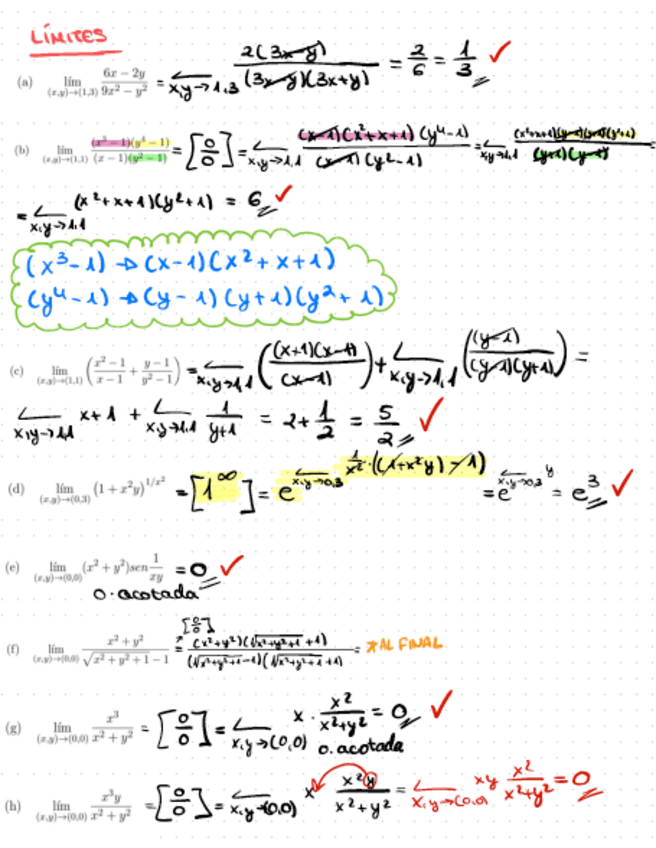 LÍMITES
(a) lím (x,y)→(1,3) 6x − 2y / 9x² − y² = lím x,y→1,3 2(3x−y) / (3x−y)(3x+y) = 2/6 = 1/3 ✓
(b) lím (x,y)→(1,1) (x³ − 1)(y⁴ − 1) / (x − 1)(y² − 1) = [0/0] = lím x,y→1,1 (x−1)(x²+x+1)(y⁴−1) / (x−1)(y²−1) = lím x,y→1,1 (x²+x+1)(y−1)(y+1)(y²+1) / (y+1)(y−1) =
= lím x,y→1,1 (x²+x+1)(y²+1) = 6 ✓
(x³−1) → (x−1)(x²+x+1)
(y⁴−1) → (y−1)(y+1)(y²+1)
(c) lím (x,y)→(1,1) (x² − 1 / x − 1 + y − 1 / y² − 1) = lím x,y→1,1 ((x+1)(x−1) / (x−1)) + lím x,y→1,1 ((y−1) / (y−1)(y+1)) =
lím x,y→1,1 x+1 + lím x,y→1,1 1 / y+1 = 2 + 1/2 = 5/2 ✓
(d) lím (x,y)→(0,3) (1 + x²y)^1/x² = [1^∞] = e^lím x,y→0,3 1/x² · ((1+x²y)−1) = e^lím x,y→0,3 y = e³ ✓
(e) lím (x,y)→(0,0) (x² + y²)sen 1/xy = 0 ✓
0 · acotada
(f) lím (x,y)→(0,0) x² + y² / √x² + y² + 1 − 1 = [0/0] (x²+y²)(√x²+y²+1 +1) / (√x²+y²+1 −1)(√x²+y²+1 +1) = * AL FINAL
(g) lím (x,y)→(0,0) x³ / x² + y² = [0/0] = lím x,y→(0,0) x · x² / x²+y² = 0 ✓
0 · acotada
(h) lím (x,y)→(0,0) x³y / x² + y² = [0/0] = lím x,y→(0,0) x x²y / x²+y² = lím x,y→(0,0) xy x² / x²+y² = 0